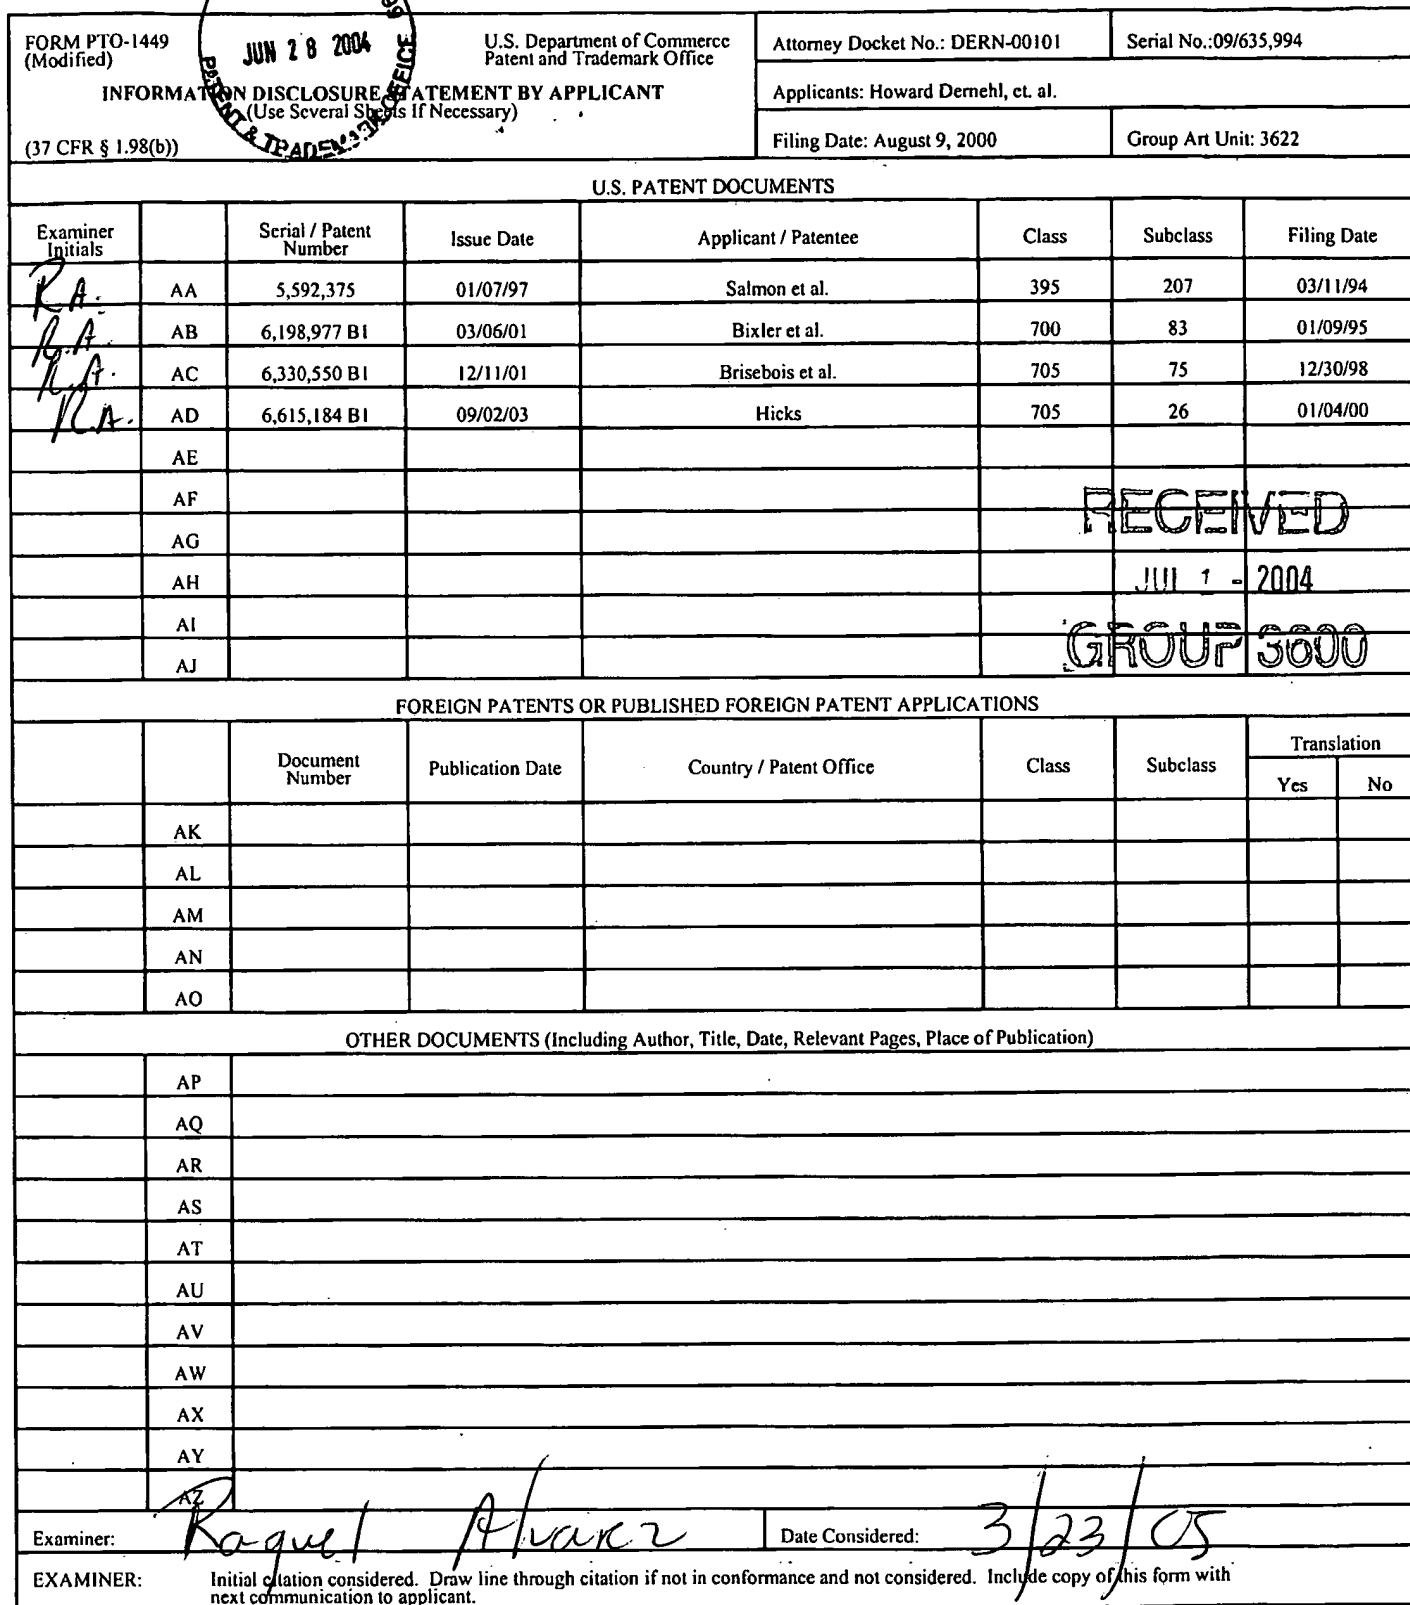 JUN 28 2004
PATENT & TRADEMARK OFFICE
FORM PTO-1449
(Modified)
U.S. Department of Commerce
Patent and Trademark Office
INFORMATION DISCLOSURE STATEMENT BY APPLICANT
(Use Several Sheets If Necessary)
(37 CFR § 1.98(b))
Attorney Docket No.: DERN-00101
Serial No.:09/635,994
Applicants: Howard Dernehl, et. al.
Filing Date: August 9, 2000
Group Art Unit: 3622
U.S. PATENT DOCUMENTS
Examiner Initials
Serial / Patent Number
Issue Date
Applicant / Patentee
Class
Subclass
Filing Date
R.A. AA 5,592,375 01/07/97 Salmon et al. 395 207 03/11/94
R.A. AB 6,198,977 B1 03/06/01 Bixler et al. 700 83 01/09/95
R.A. AC 6,330,550 B1 12/11/01 Brisebois et al. 705 75 12/30/98
R.A. AD 6,615,184 B1 09/02/03 Hicks 705 26 01/04/00
AE
AF
RECEIVED
AG
AH
JUL 1 - 2004
AI
GROUP 3600
AJ
FOREIGN PATENTS OR PUBLISHED FOREIGN PATENT APPLICATIONS
Document Number
Publication Date
Country / Patent Office
Class
Subclass
Translation
Yes No
AK
AL
AM
AN
AO
OTHER DOCUMENTS (Including Author, Title, Date, Relevant Pages, Place of Publication)
AP
AQ
AR
AS
AT
AU
AV
AW
AX
AY
AZ
Examiner: Raquel Alvarez
Date Considered: 3/23/05
EXAMINER: Initial citation considered. Draw line through citation if not in conformance and not considered. Include copy of this form with
next communication to applicant.